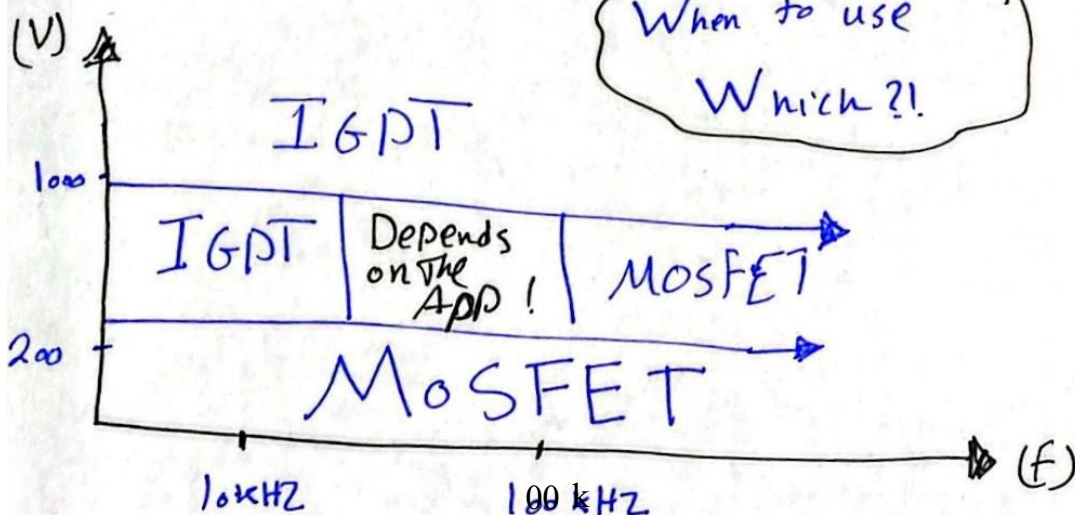 (V)
When to use
Which?!
IGDT
1000
IGDT
Depends
on The
App!
MOSFET
200
MOSFET
(f)
10kHz
100 kHz